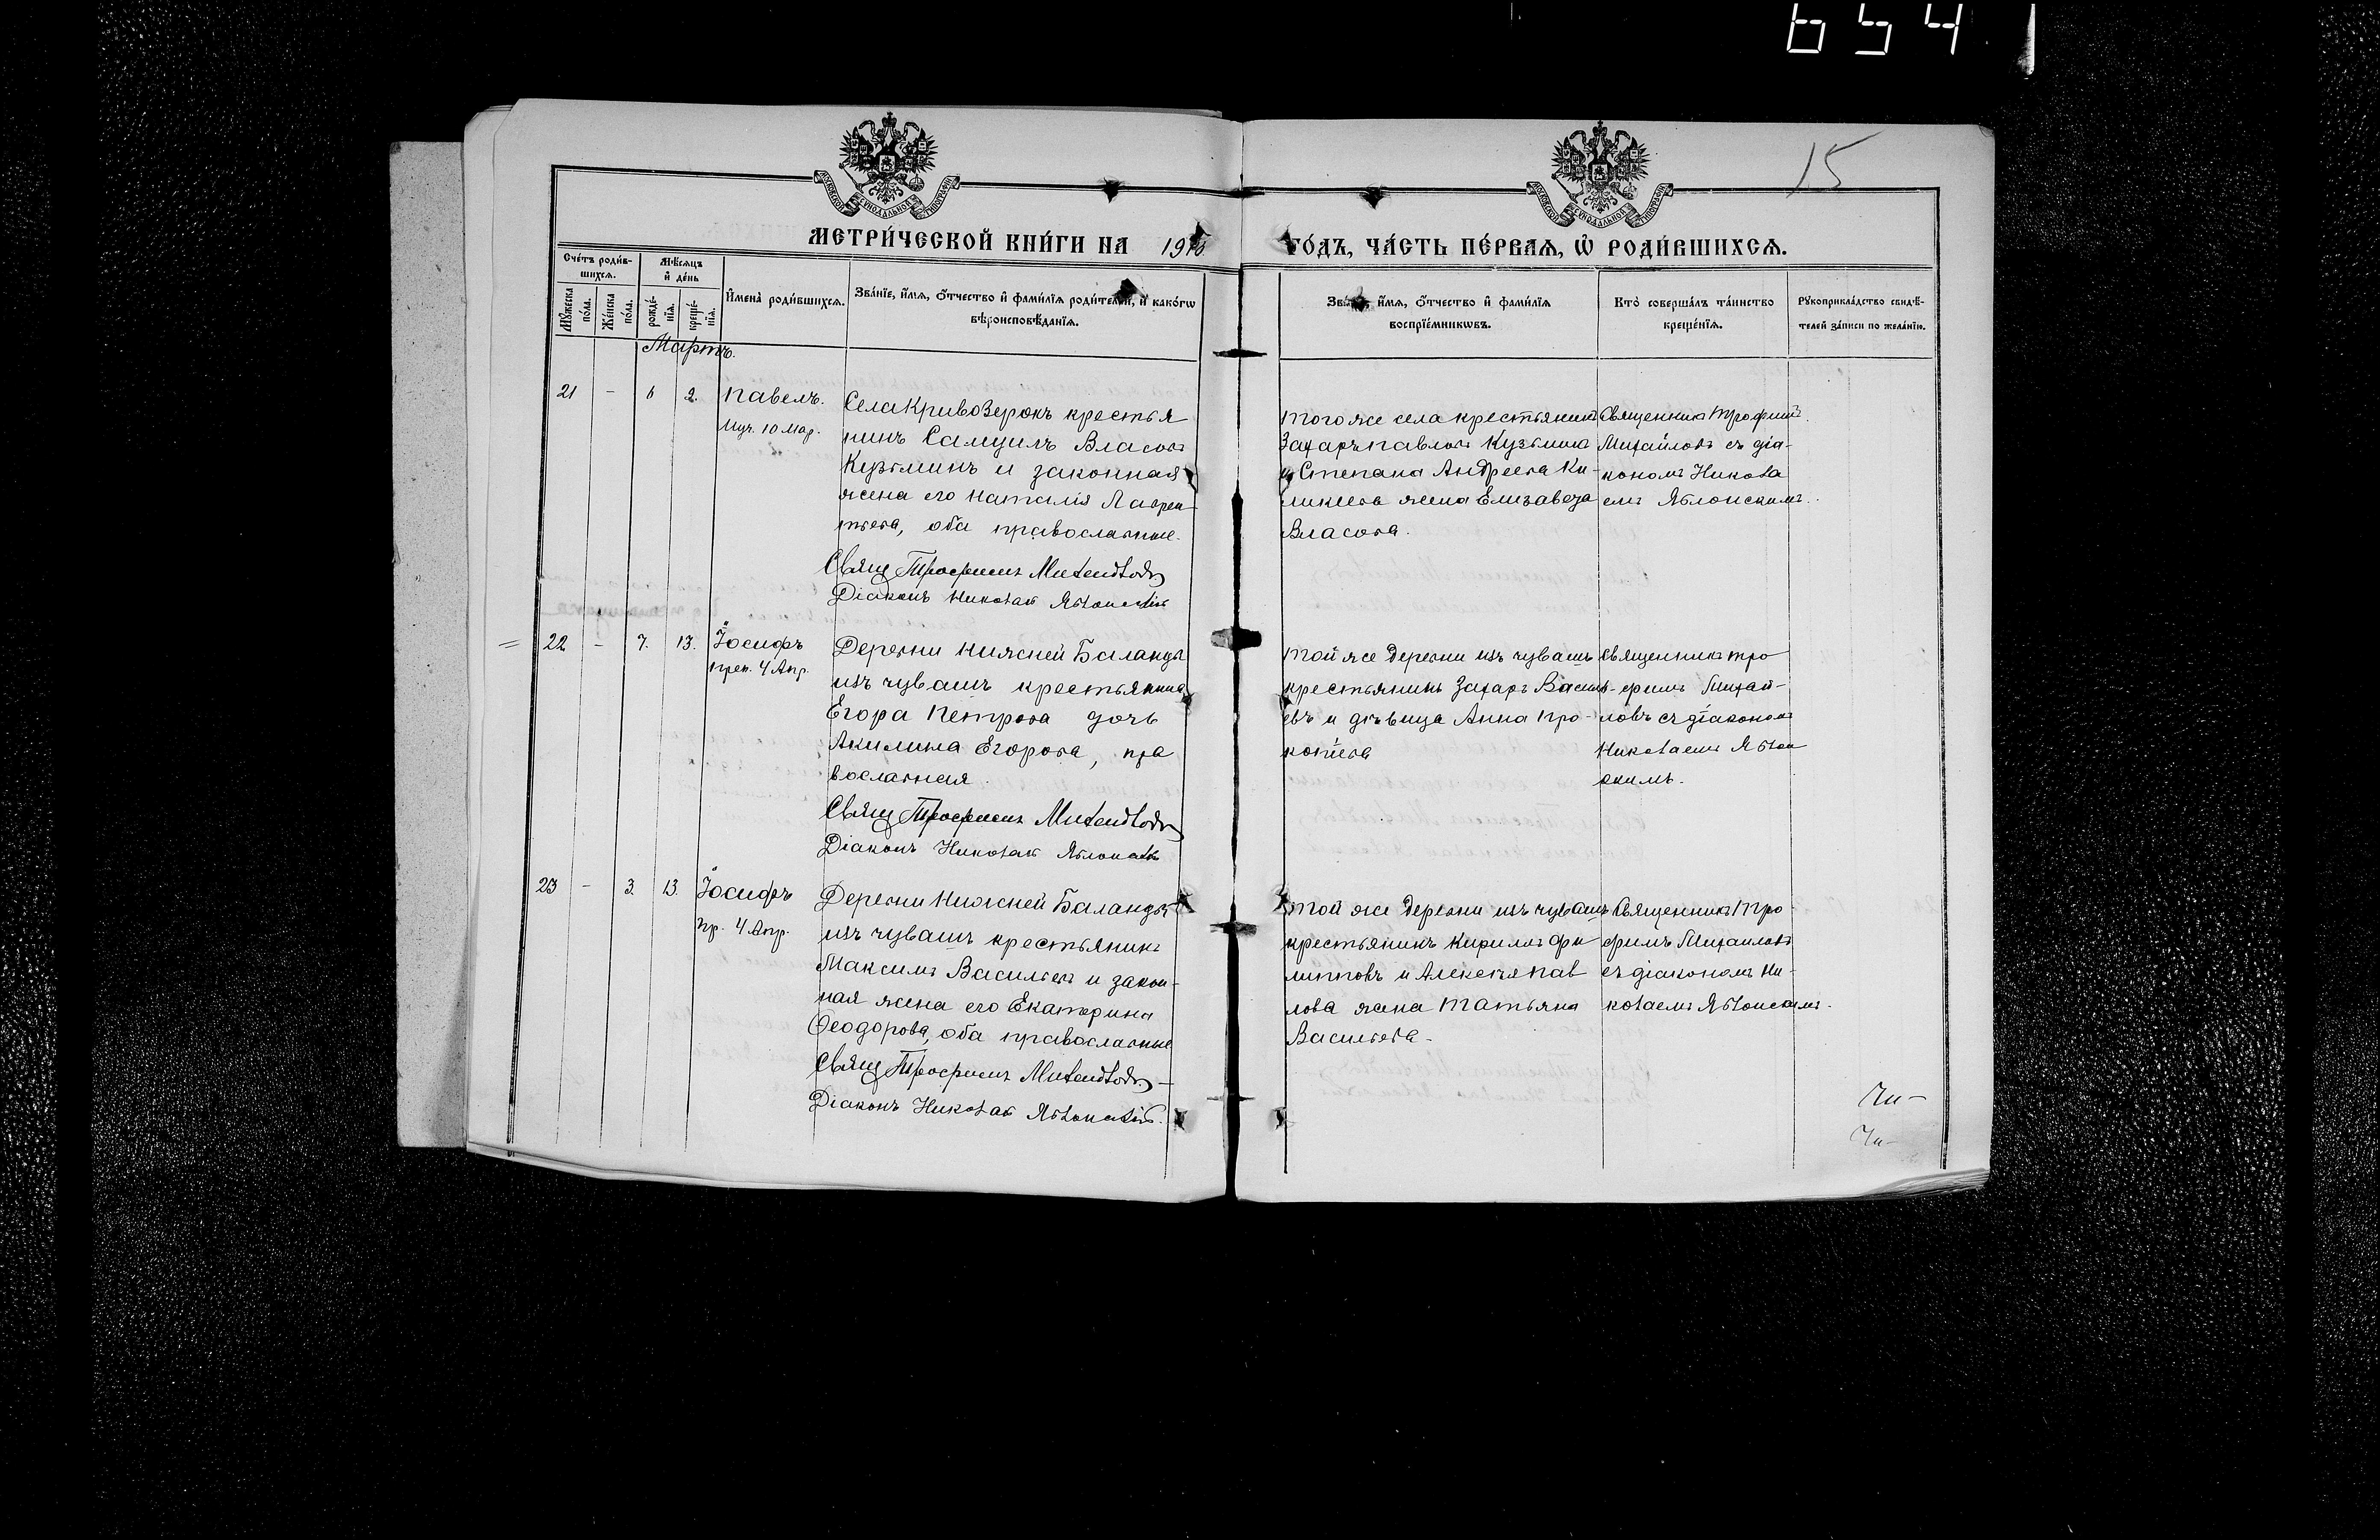 6541
15
МЕТРИ́ЧЕСКОЙ КНИ́ГИ НА
ГО́ДЪ, ЧА́СТЬ ПЕ́РВАЯ, Ѡ҆ РОДИ́ВШИХСЯ.
Сче́тъ роди́в-
шихся.
Мѣ́сяцъ
и҆ де́нь
Мꙋ́жеска
по́ла.
Же́нска
по́ла.
рожде́-
нїя.
креще́-
нїя.
И҆мена̀ роди́вшихся.
Зва́нїе, и҆́мя, ѻ҆́тчество и҆ фами́лїя роди́телей, и҆ како́гѡ
вѣроисповѣ́данїя.
Зва́нїе, и҆́мя, ѻ҆́тчество и҆ фами́лїя
воспрїе́мникѡвъ.
Кто̀ соверша́лъ та́инство
креще́нїя.
Рꙋкоприкла́дство свидѣ́-
телей за́писи по жела́нїю.
Мартъ.
21 - 6 2. Павелъ.
Муч. 10 Мар.
Села Кривозерокъ крестья
нинъ Самуилъ Власовъ
Кузьминъ и законная
жена его Наталія Лаврен
тьева, оба православные.
Свящ Трофимъ Михайловъ
Діаконъ Николай Яблонскій
Того же села крестьянинъ
Захаръ Павловъ Кузьминъ
и Степана Андреева Ки-
жена Елизавета
Власова.
Священникъ Трофимъ
Михайловъ съ діа-
кономъ Никола
емъ Яблонскимъ.
22 - 7. 13. Іосифъ
преп. 4 Апр.
Деревни Нижней Баланды
изъ чувашъ крестьянина
Егора Петрова дочь
Акилина Егорова, пра
вославная.
Свящ Трофимъ Михайловъ
Діаконъ Николай Яблонскій
Той же деревни изъ чувашъ
крестьянинъ Захаръ Василь-
евъ и дѣвица Анна Про-
копіева
Священникъ Тро
фимъ Михай-
ловъ съ діакономъ
Николаемъ Яблон
скимъ.
23 - 3. 13. Іосифъ
пр. 4 Апр.
Деревни Нижней Баланды
изъ чувашъ крестьянинъ
Максимъ Васильевъ и закон-
ная жена его Екатерина
Ѳеодорова, оба православные
Свящ Трофимъ Михайловъ -
Діаконъ Николай Яблонскій.
Той же деревни изъ чувашъ
крестьянинъ Кирилъ Фи
липповъ и Алексѣя Пав
лова жена Татьяна
Васильева -
Священникъ Тро
фимъ Михайловъ
съ діакономъ Ни-
колаемъ Яблонскимъ.